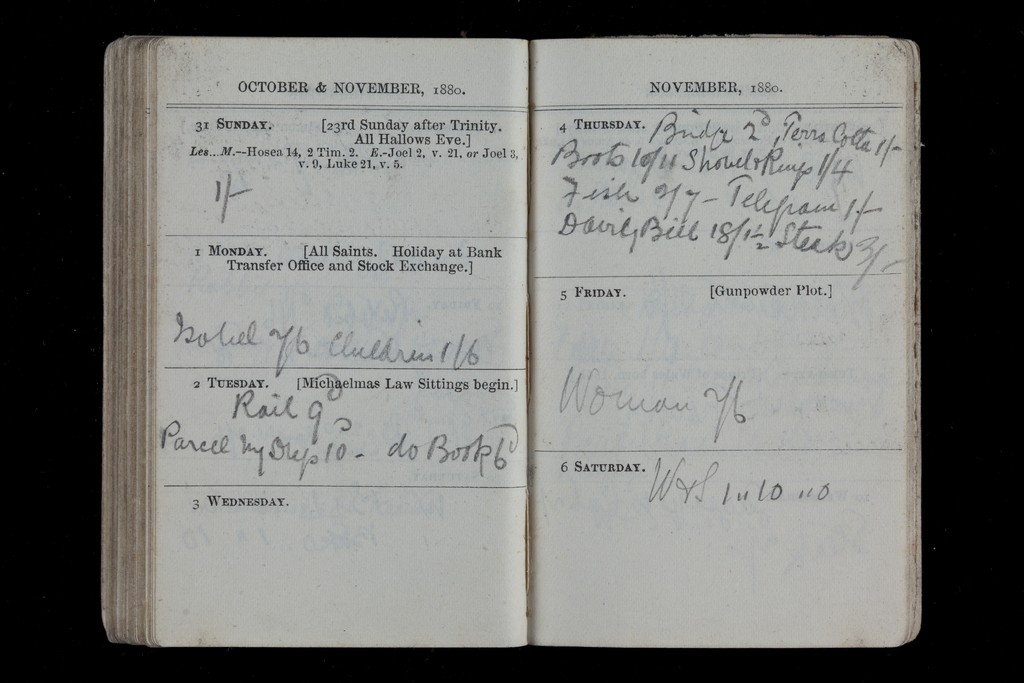 OCTOBER & NOVEMBER, 1880.
31 SUNDAY. [23rd Sunday after Trinity.
All Hallows Eve.]
Les...M.—Hosea 14, 2 Tim. 2. E.-Joel 2, v. 21, or Joel 3,
v. 9, Luke 21, v. 5.
1/-
1 MONDAY. [All Saints. Holiday at Bank
Transfer Office and Stock Exchange.]
Isobel 2/6 Children 1/6
2 TUESDAY. [Michaelmas Law Sittings begin.]
Rail 9d
Parcel my Dress 10d - do Books 6d
3 WEDNESDAY.
NOVEMBER, 1880.
4 THURSDAY. Bridge 2d, Terra Cotta 1/-
Boots 10/11 Shovel & Rings 1/4
Fish 2/7 - Telegram 1/-
Bill 18/1½ Steak 3/-
5 FRIDAY. [Gunpowder Plot.]
Woman 2/6
6 SATURDAY. W&S 1 " 10 " 0